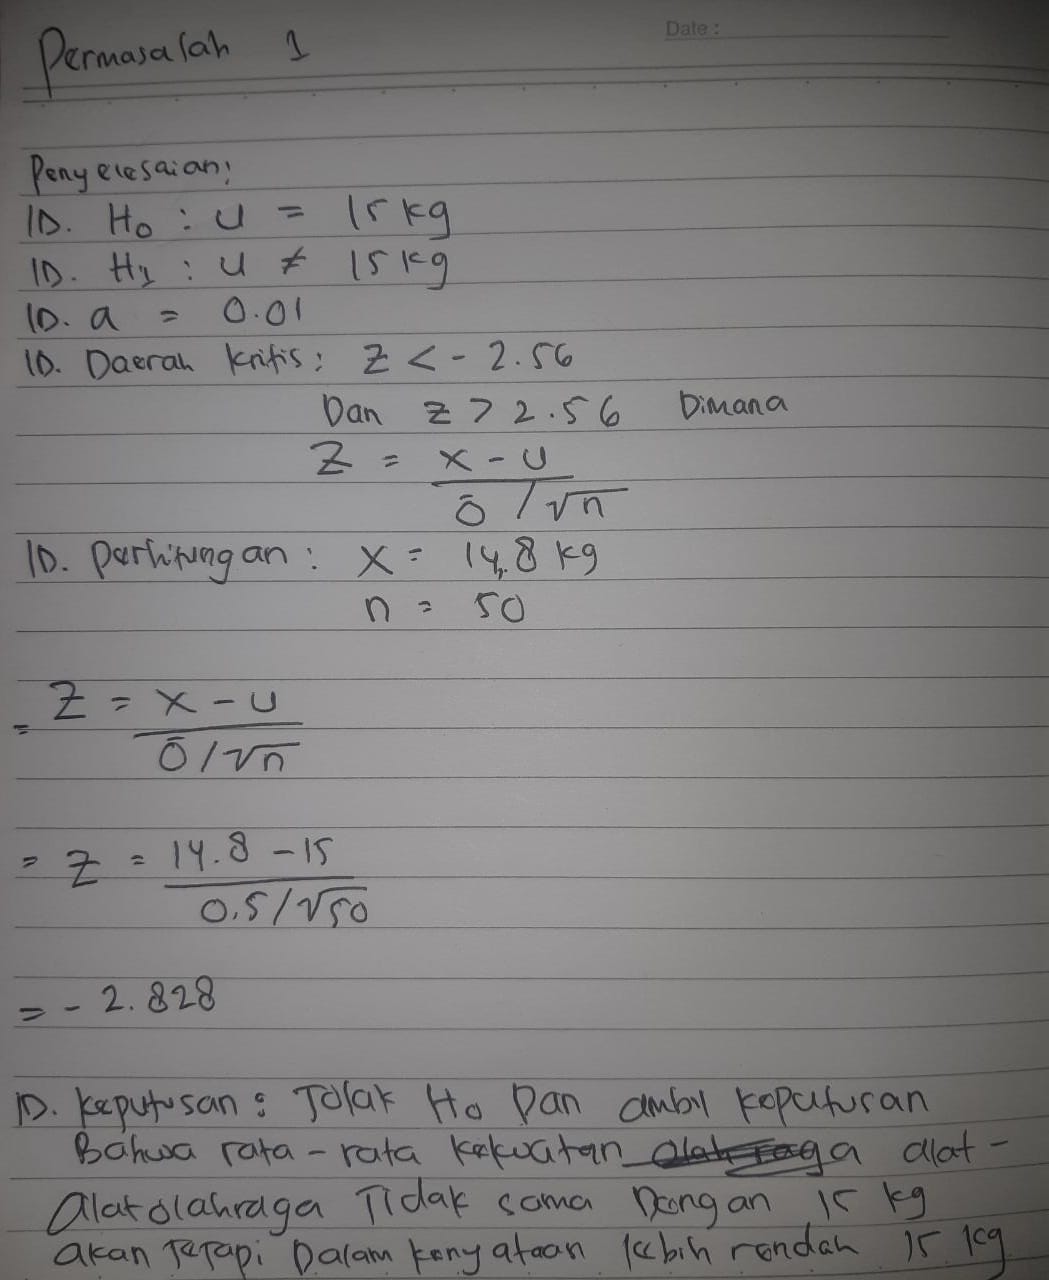 Date :
Permasalah 1
Penyelesaian:
1D. H₀ : U = 15 kg
1D. H₁ : U ≠ 15 kg
1D. a = 0.01
1D. Daerah kritis : Z < - 2.56
Dan Z > 2.56 Dimana
Z = X - U
ō / √n
1D. Perhitungan : X = 14,8 kg
n = 50
= Z = X - U
ō / √n
= Z = 14.8 - 15
0,5 / √50
= - 2.828
1D. Keputusan : Tolak H₀ Dan ambil keputusan
Bahwa rata - rata kekuatan alat -
Alat olahraga Tidak sama Dengan 15 kg
akan Tetapi Dalam kenyataan lebih rendah 15 kg